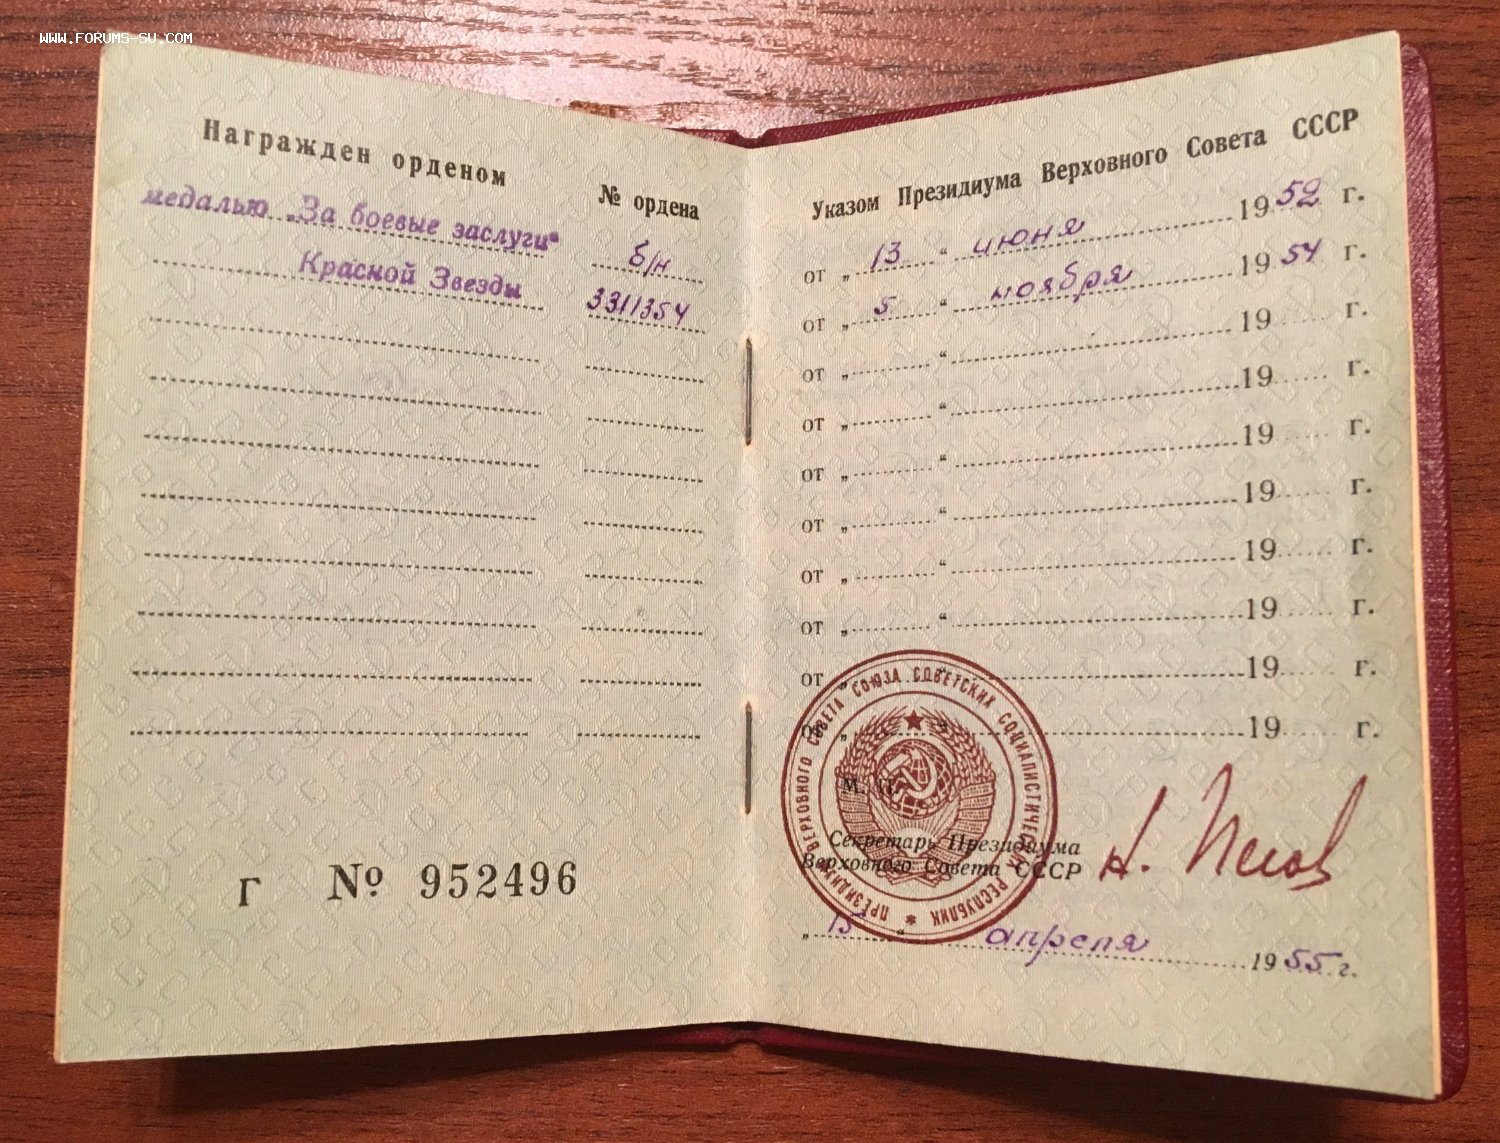 WWW.FORUMS-SU.COM
Награжден орденом
№ ордена
медалью „За боевые заслуги“
б/н
Красной Звезды
3311354
Г № 952496
Указом Президиума Верховного Совета СССР
от „ 13 “ июня 1952 г.
от „ 5 “ ноября 1954 г.
от „ “ 19 г.
от „ “ 19 г.
от „ “ 19 г.
от „ “ 19 г.
от „ “ 19 г.
от „ “ 19 г.
от „ 19 г.
от „ “ 19 г.
ПРЕЗИДИУМ ВЕРХОВНОГО СОВЕТА СОЮЗА СОВЕТСКИХ СОЦИАЛИСТИЧЕСКИХ РЕСПУБЛИК
М. П.
Секретарь Президиума
Верховного Совета СССР
Н. Пегов
„ 15 “ апреля 1955 г.